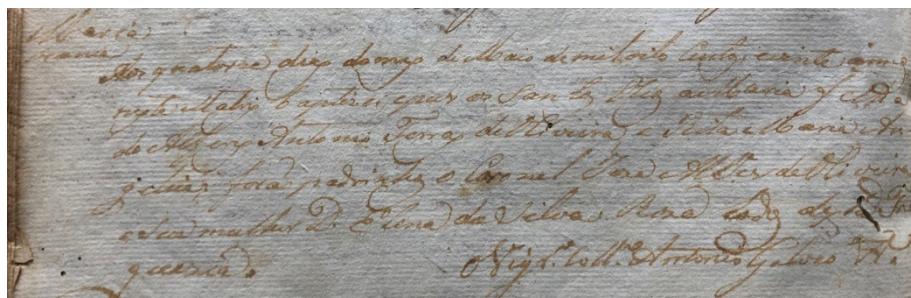 Maria
Aos quatorze dias do mez de Maio de mil oito centos e vinte e cinco
nesta Matriz baptizei e pus os Santos Oleos a Maria f.
do Alferes Antonio Ferraz de Oliveira, e Rita Maria An
forão padrinhos o Coronel Jose de Oliveira
e sua mulher D. Elena da Silva Roza todos desta Fre
guezia.
O Vig.º Coll.º Antonio